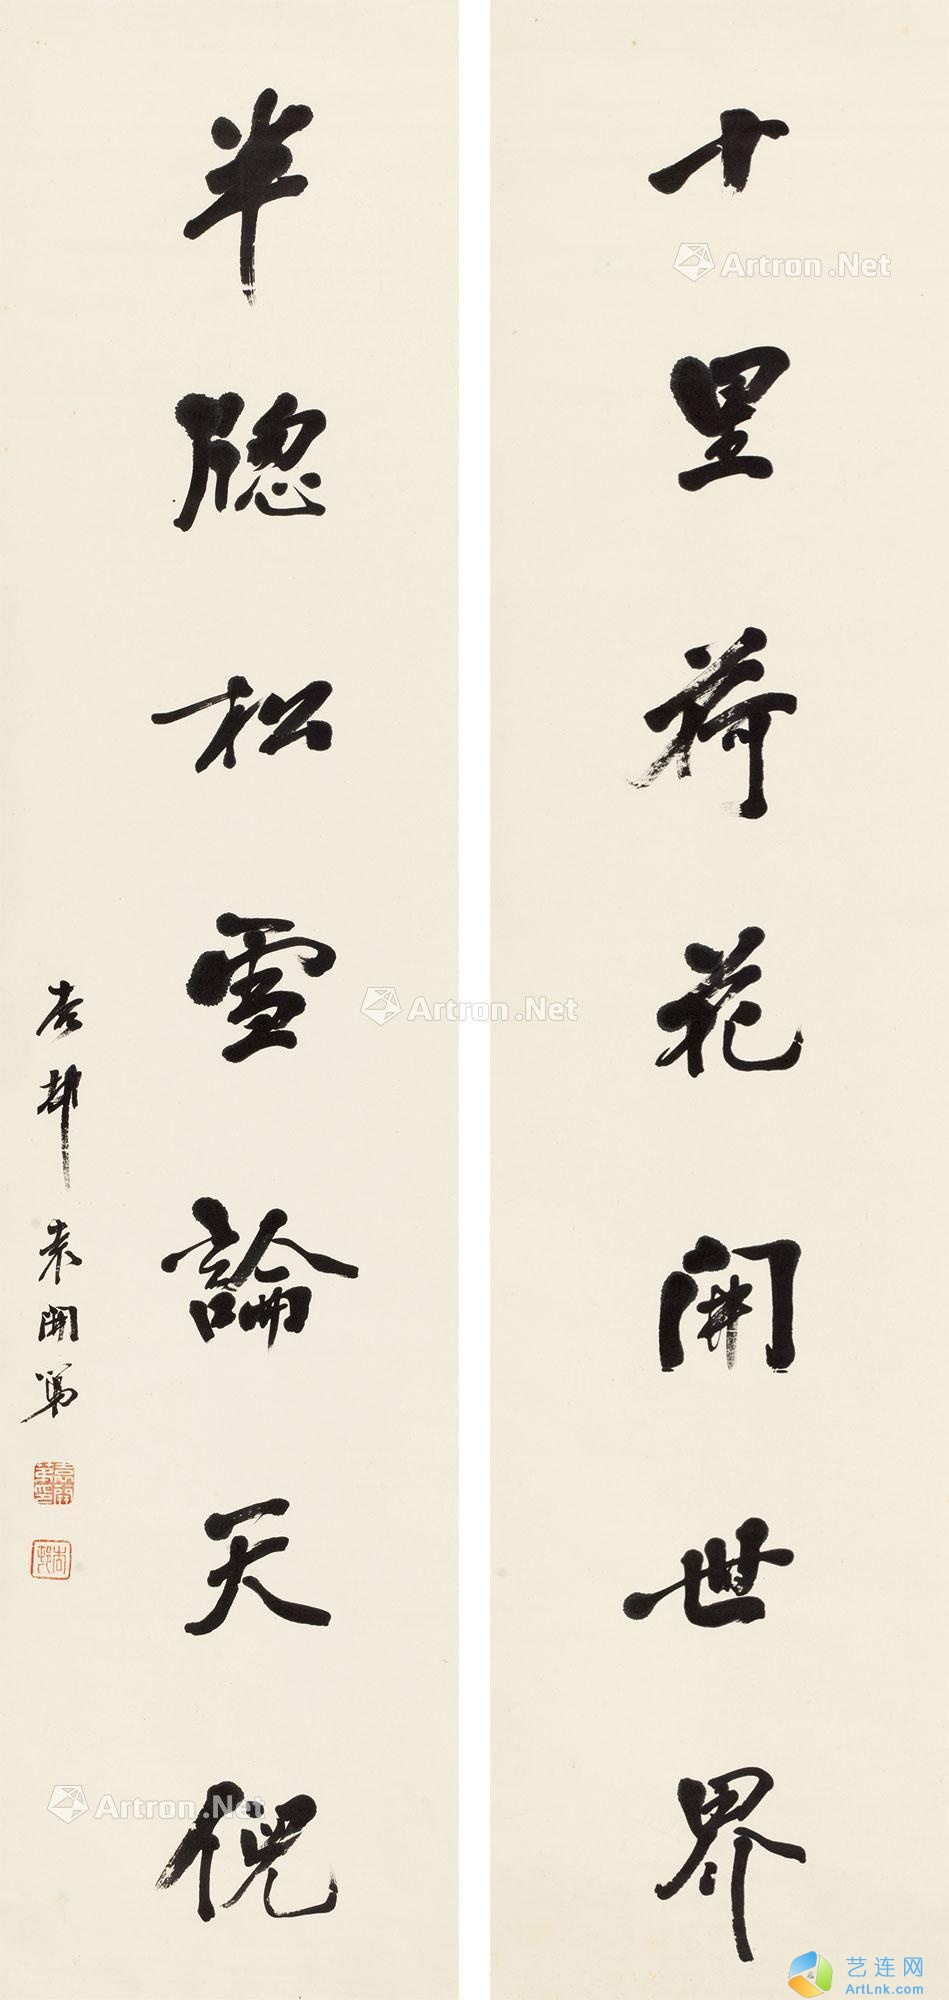 十里荷花開世界
半牕松雪論天倪
杏邨袁開第
袁開第印
杏邨
Artron.Net
Artron.Net
Artron.Net
艺连网
ArtLnk.com